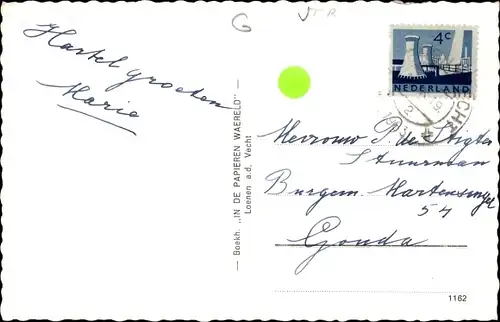 G
Hartel groeten
Maria
— Boekh. „IN DE PAPIEREN WAERELD" —
Loenen a.d. Vecht
4c
NEDERLAND
Mevrouw P. de Ruigter
Stuurman
Burgem. Martenssingel
54
Gouda
1162